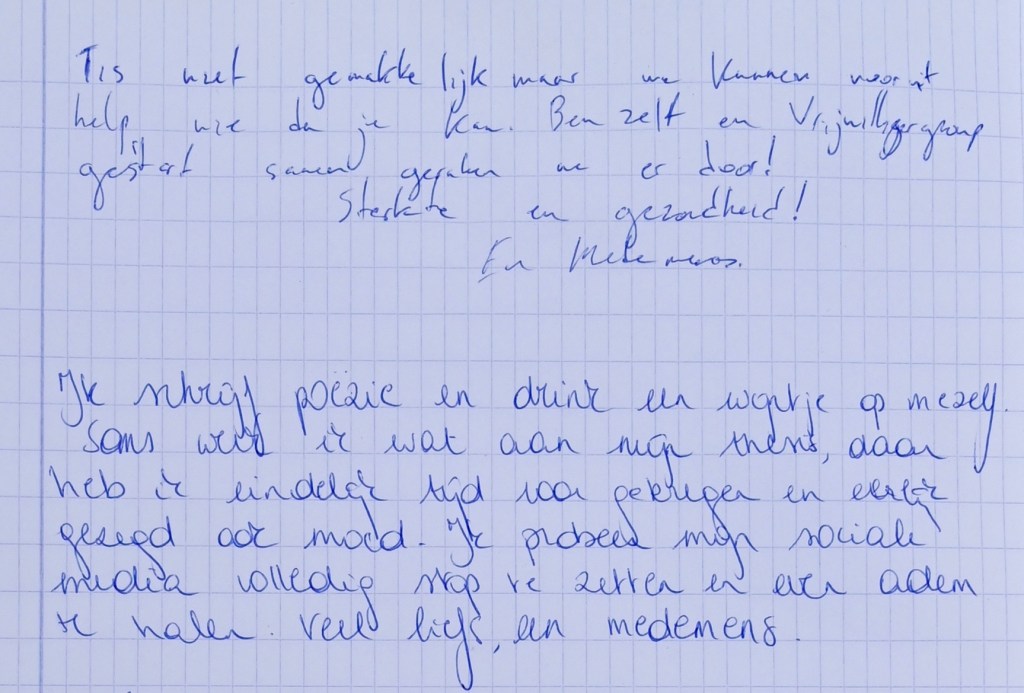 Tis niet gemakkelijk maar we kunnen vooruit
help wie da je kan. Ben zelf en Vrijwilligergroep
gestart samen geraken we er door!
Sterkte en gezondheid!
En Medemens.
Ik schrijf poëzie en drink een wijntje op mezelf.
Soms werk ik wat aan mijn thesis, daar
heb ik eindelijk tijd voor gekregen en eerlijk
gezegd ook moed. Ik probeer mijn sociale
media volledig stop te zetten en even adem
te halen. Veel liefs, een medemens.